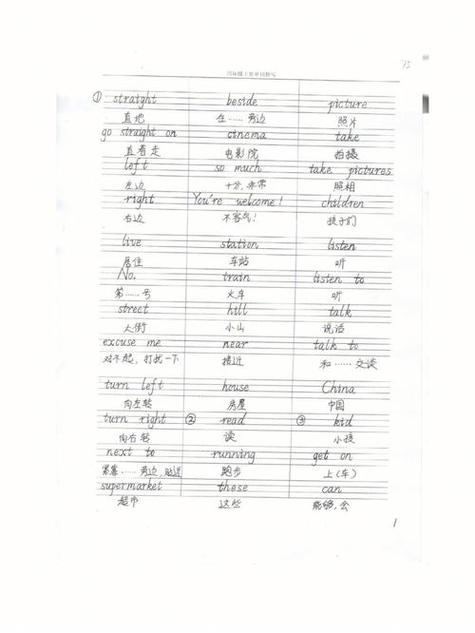 四年级上册单词默写
75
① straight beside picture
直地 在……旁边 照片
go straight on cinema take
直着走 电影院 拍摄
left so much take pictures
左边 十分，非常 照相
right You're welcome! children
右边 不客气！ 孩子们
live station listen
居住 车站 听
No. train listen to
第……号 火车 听
street hill talk
大街 小山 说话
excuse me near talk to
对不起，打扰一下 接近 和……交谈
turn left house China
向左转 房屋 中国
turn right ② read ③ kid
向右转 读 小孩
next to running get on
紧靠……旁边，贴近 跑步 上（车）
supermarket these can
超市 这些 能够，会
1